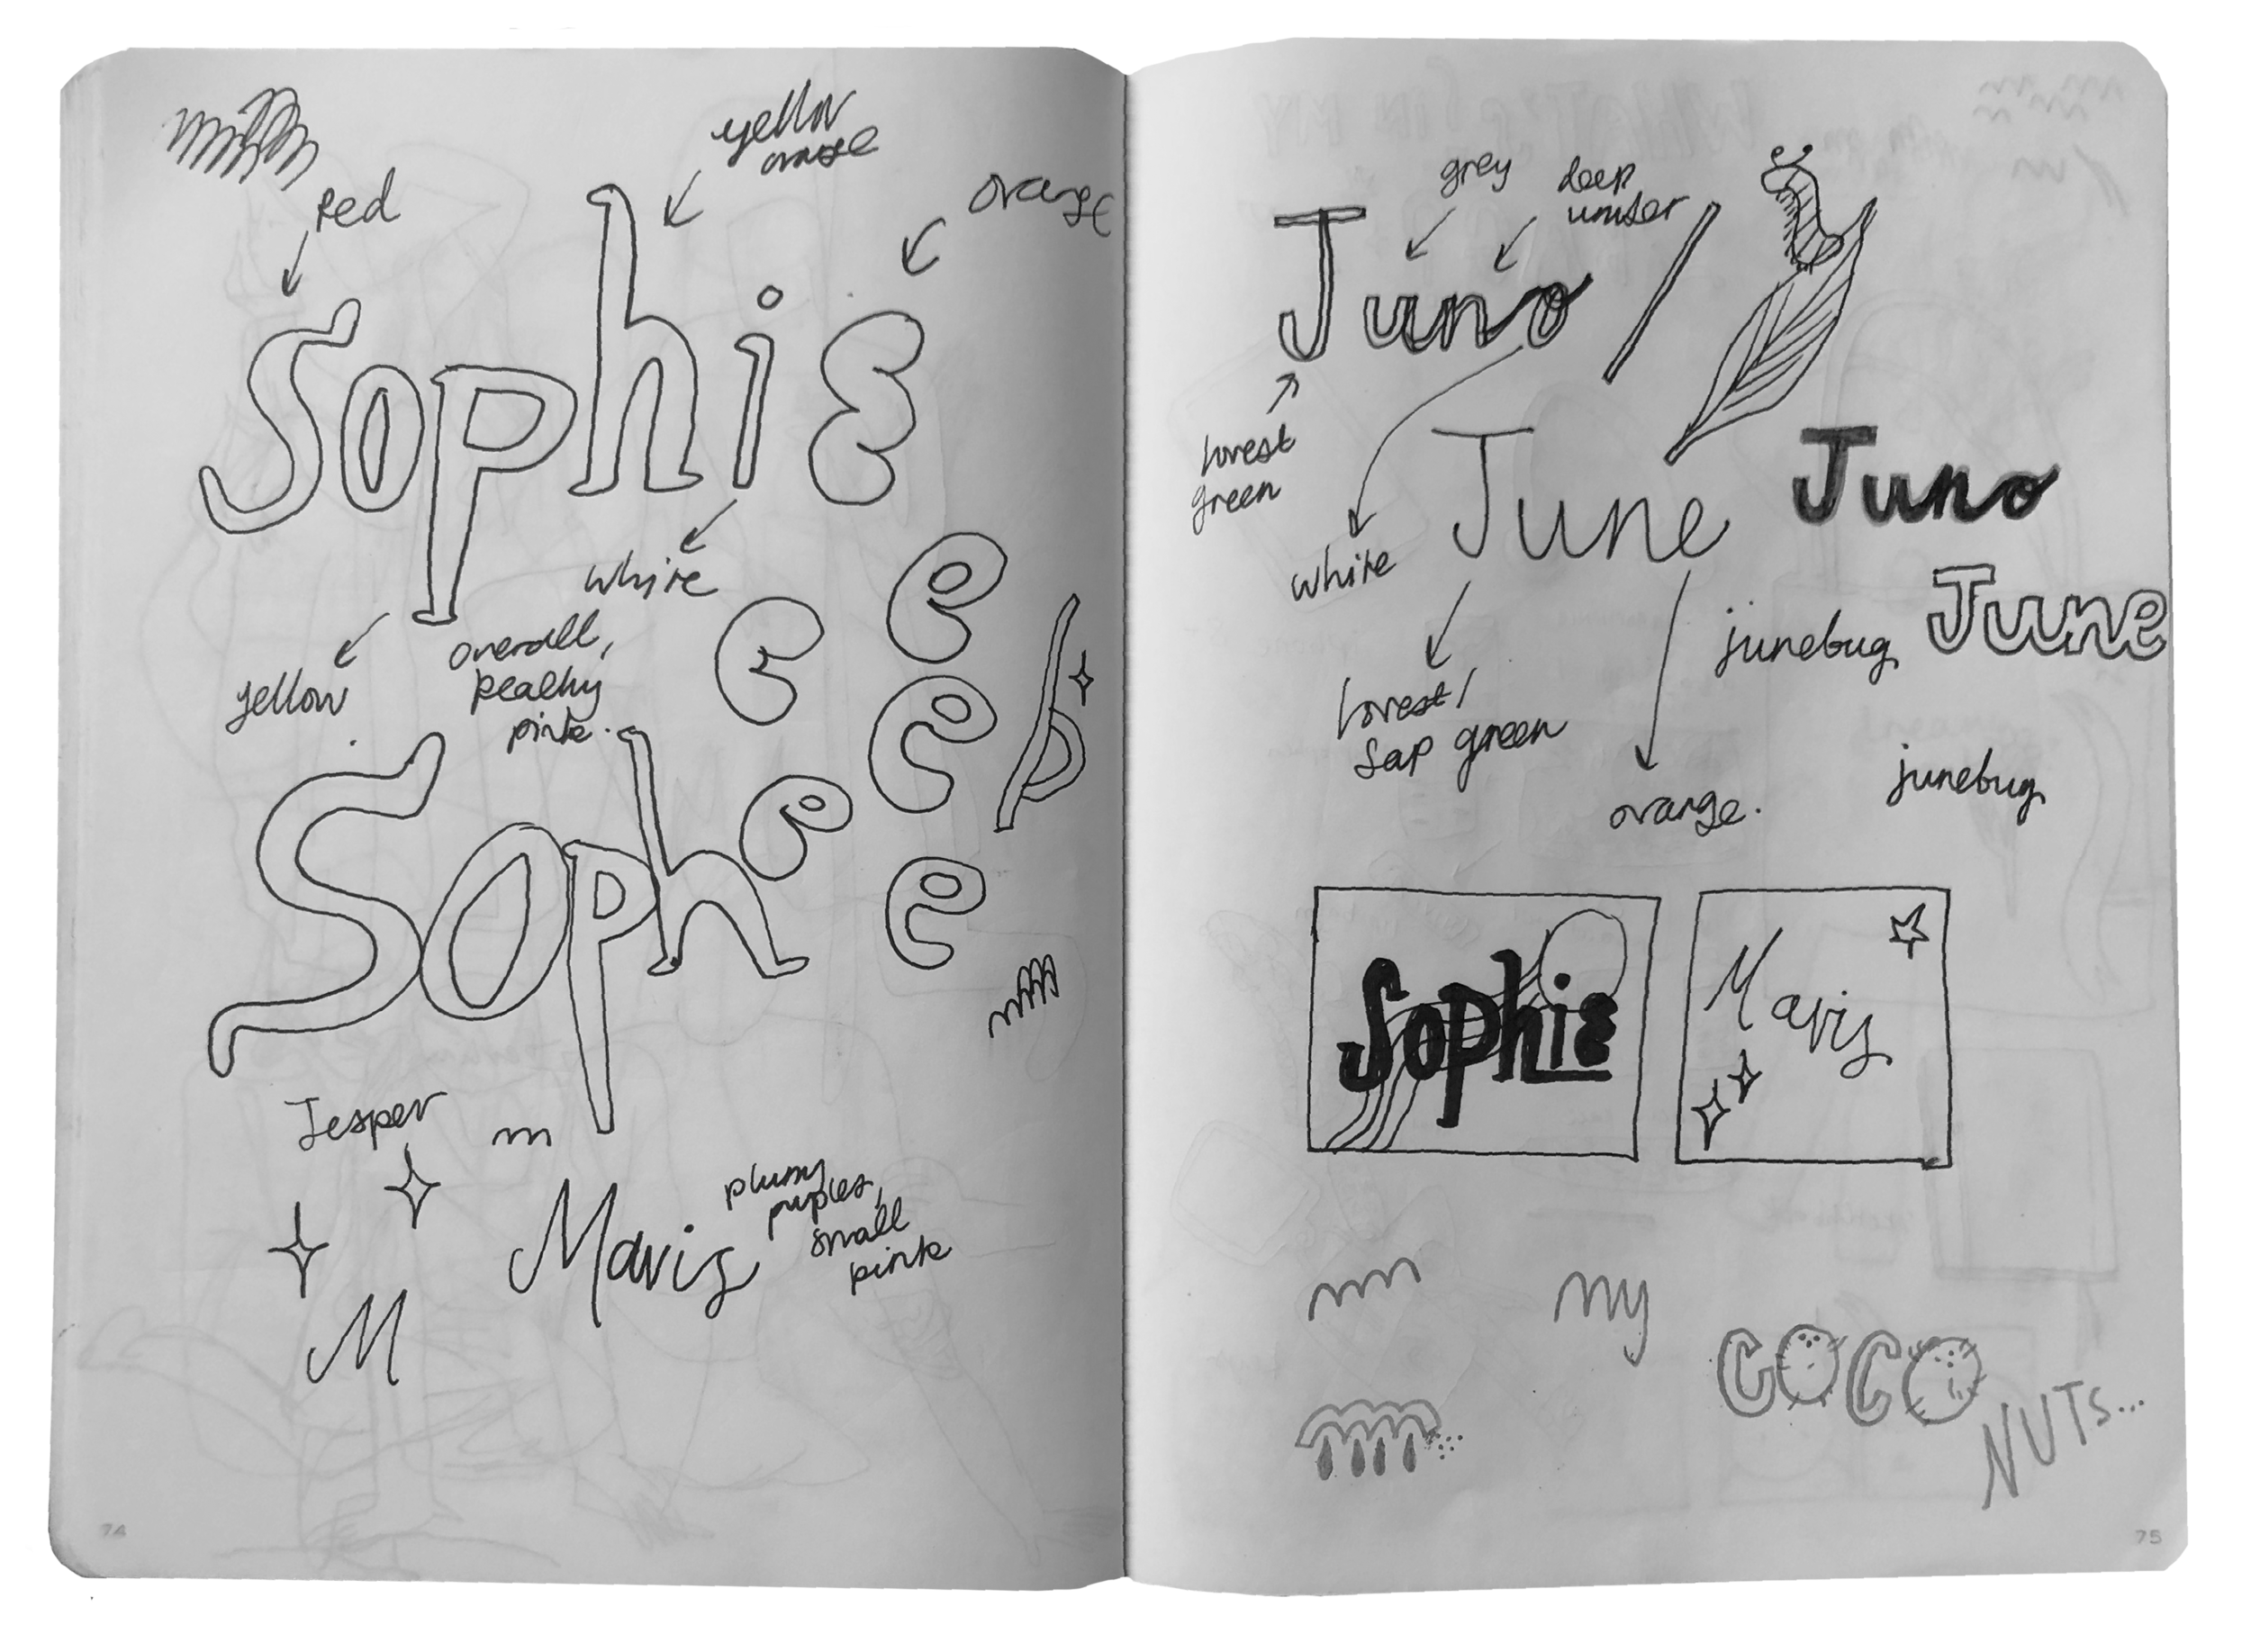 Red
yellow
orange
orange
Sophie
white
yellow
overall,
peachy
pink.
e
e
e
Sophe
e
Jesper
m
Mavis
plumy
puples,
small
pink
M
74
grey
deep
umber
Juno
forest
green
white
June
Juno
June
junebug
forest/
sap green
orange.
junebug
Sophie
Mavis
my
COCO
NUTS...
75